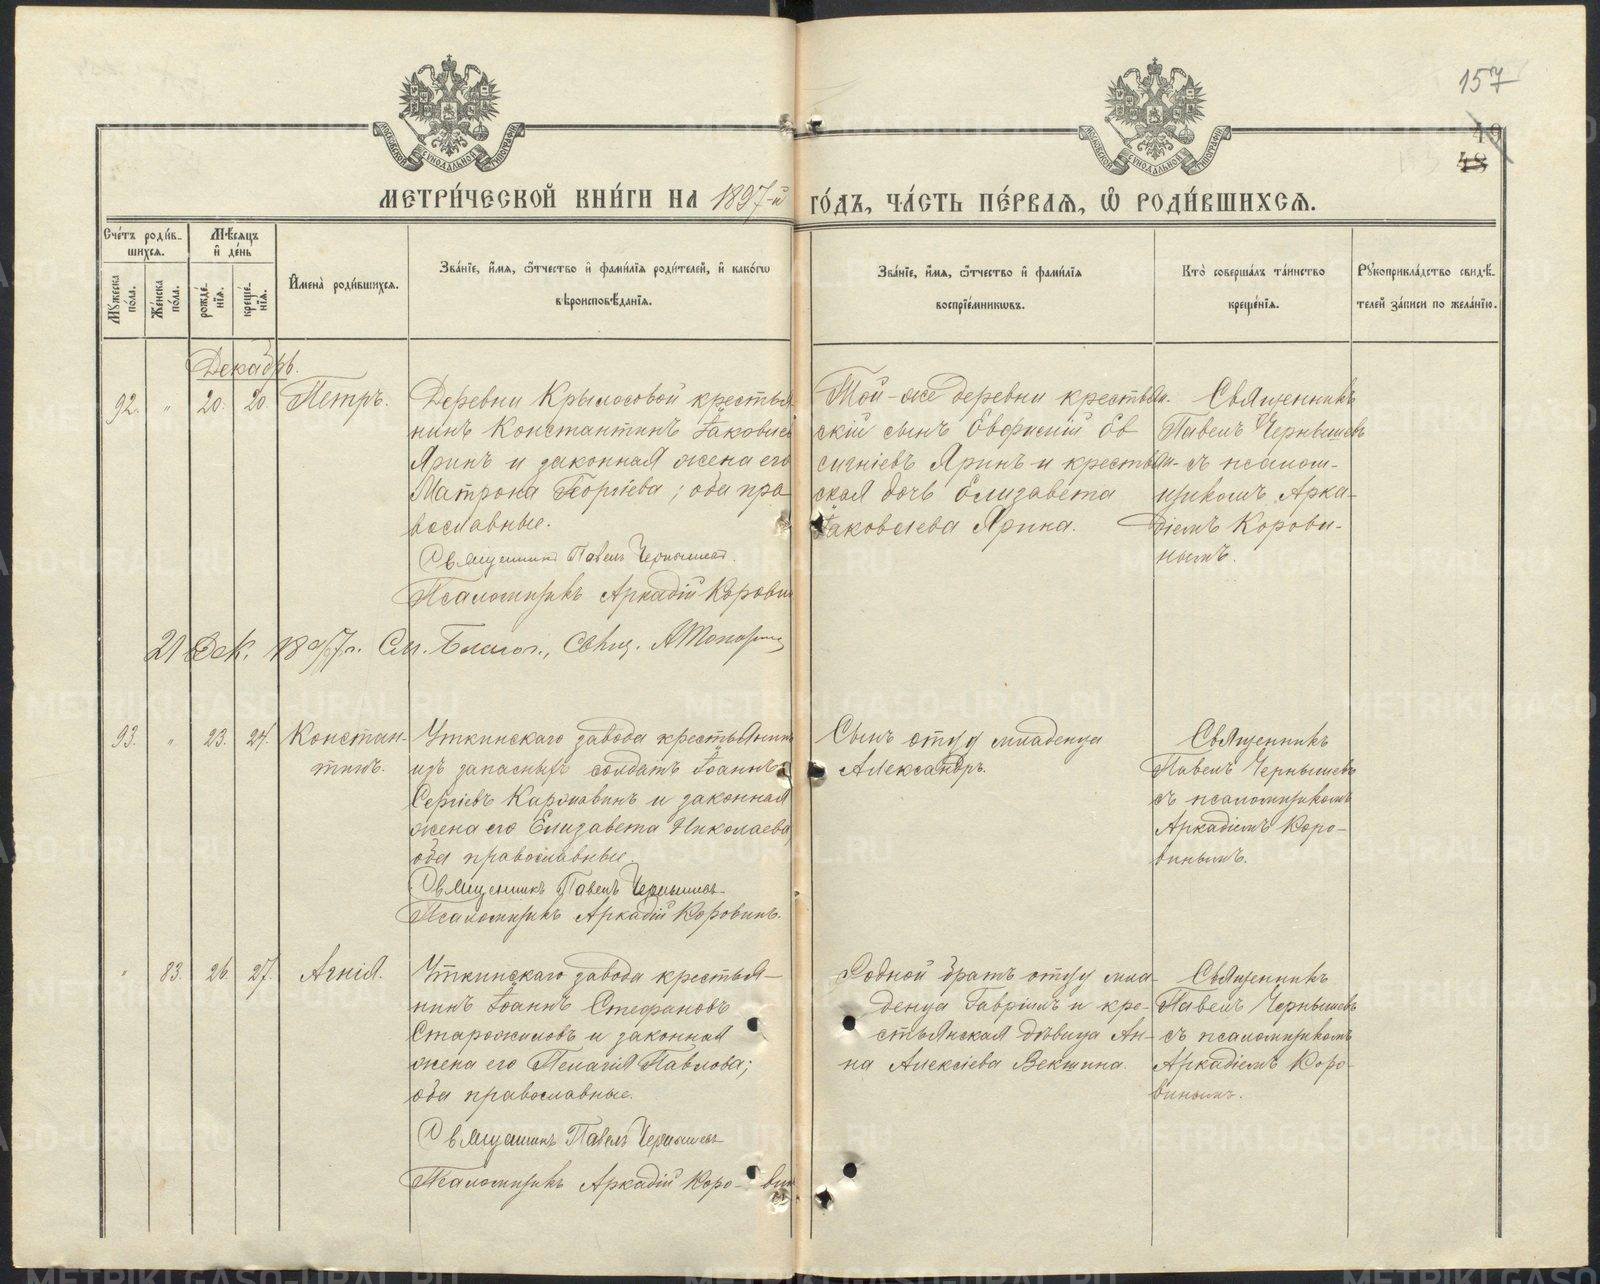 157
49
48
МОСКОВСКОЙ СУНОДАЛЬНОЙ ТИПОГРАФІИ
МОСКОВСКОЙ СУНОДАЛЬНОЙ ТИПОГРАФІИ
МЕТРИ́ЧЕСКОЙ КНИ́ГИ НА 1897-й ГО́ДЪ, ЧА́СТЬ ПЕ́РВАЯ, Ѽ РОДИ́ВШИХСЯ.
Сче́тъ роди́в-
шихся.
Мѣ́сяцъ
и҆ де́нь
Мꙋ́жеска по́ла.
Же́нска по́ла.
рожде́-
нія.
креще́-
нія.
И҆мена̀ роди́вшихся.
Зва́ніе, и҆́мя, ѻ҆́тчество и҆ фами́лія роди́телей, и҆ како́гѡ
вѣроисповѣ́данія.
Зва́ніе, и҆́мя, ѻ҆́тчество и҆ фами́лія
воспріе́мникѡвъ.
Кто̀ соверша́лъ та́инство
креще́нія.
Рꙋкоприкла́дство свидѣ́-
телей за́писи по жела́нію.
Декабрь.
92. " 20. 20. Петръ.
Деревни Крылосовой крестья
нинъ Константинъ Іаковлев
Яринъ и законная жена его
Матрона Георгіева; оба пра
вославные.
Священникъ Павелъ Чернышевъ.
Псаломщикъ Аркадій Коровин
Той-же деревни крестьян-
скій сынъ Евфисій Ев
сигніевъ Яринъ и крестьян-
ская дочь Елизавета
Іаковлева Ярина.
Священникъ
Павелъ Чернышевъ
съ псалом-
щикомъ Арка-
діемъ Корови-
нымъ.
21 Дек. 1897 г. См. Благоч., Свящ. А Топор
93. " 23. 24. Констан-
тинъ.
Уткинскаго завода крестьянинъ
изъ запасныхъ солдатъ Іоаннъ
Сергіевъ Кармавинъ и законная
жена его Елизавета Николаева
оба православные.
Священникъ Павелъ Чернышевъ.
Псаломщикъ Аркадій Коровинъ.
Сынъ отцу младенца
Александръ.
Священникъ
Павелъ Чернышевъ
съ псаломщикомъ
Аркадіемъ Коро-
винымъ.
" 83. 26. 27. Агнія.
Уткинскаго завода крестья-
нинъ Іоаннъ Стефановъ
Старожиловъ и законная
жена его Пелагія Павлова;
оба православные.
Священникъ Павелъ Чернышевъ
Псаломщикъ Аркадій Коро-вин
Родной братъ отцу мла-
денца Гавріилъ и кре-
стьянская дѣвица Ан-
на Алексіева Векшина.
Священникъ
Павелъ Чернышевъ
съ псаломщикомъ
Аркадіемъ Коро-
винымъ.
METRIKI.GASO-URAL.RU